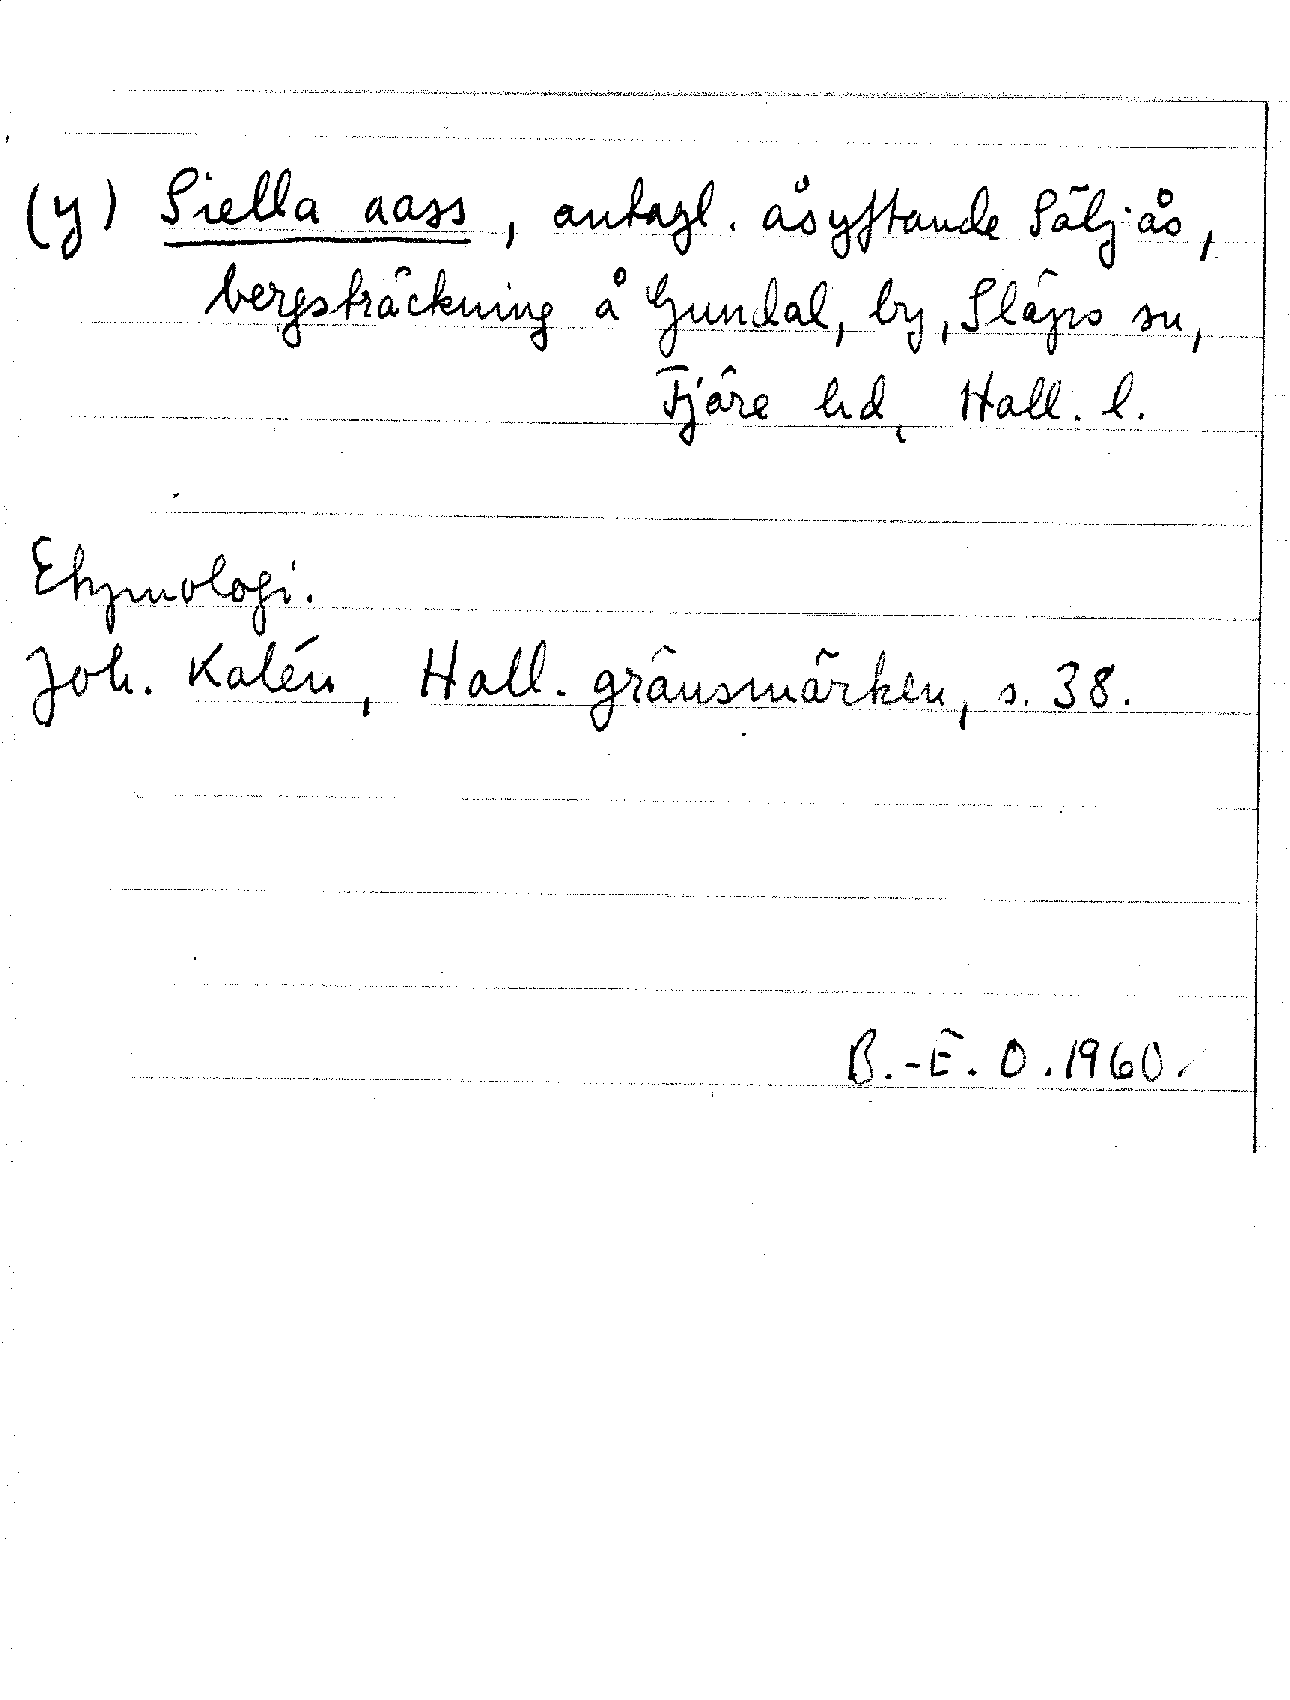 (y) Siella aass, antagl. åsyftande Säljås,
bergsträckning å Gundal, by, Släps sn,
Fjäre hd, Hall. l.
Etymologi.
Joh. Kalén, Hall. gränsmärken, s. 38.
B.-E. O. 1960.